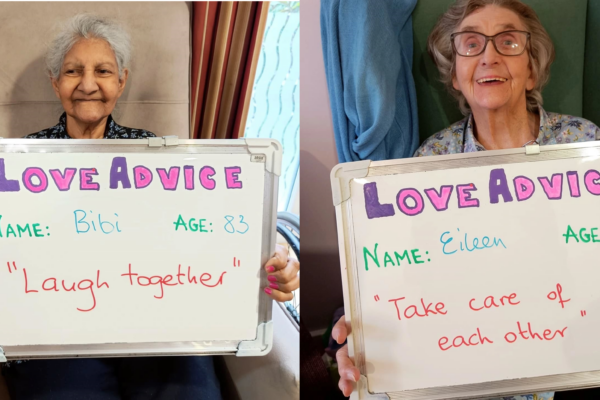 LOVE ADVICE
NAME: Bibi AGE: 83
"Laugh together"
LOVE ADVIC
NAME: Eileen AGE
"Take care of
each other"